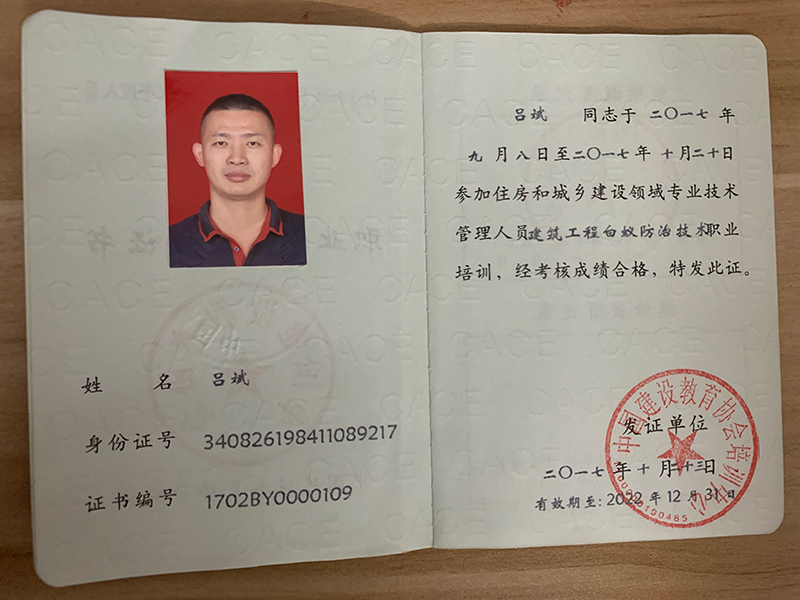 姓 名 吕斌
身份证号 340826198411089217
证书编号 1702BY0000109
吕斌 同志于 二〇一七 年
九 月 八 日至二〇一七年 十 月二十日
参加住房和城乡建设领域专业技术
管理人员建筑工程白蚁防治技术职业
培训，经考核成绩合格，特发此证。
中国建设教育协会培训中心
发证单位
二〇一七 年 十 月二十三日
有效期至: 2022 年 12 月 31 日
CACE